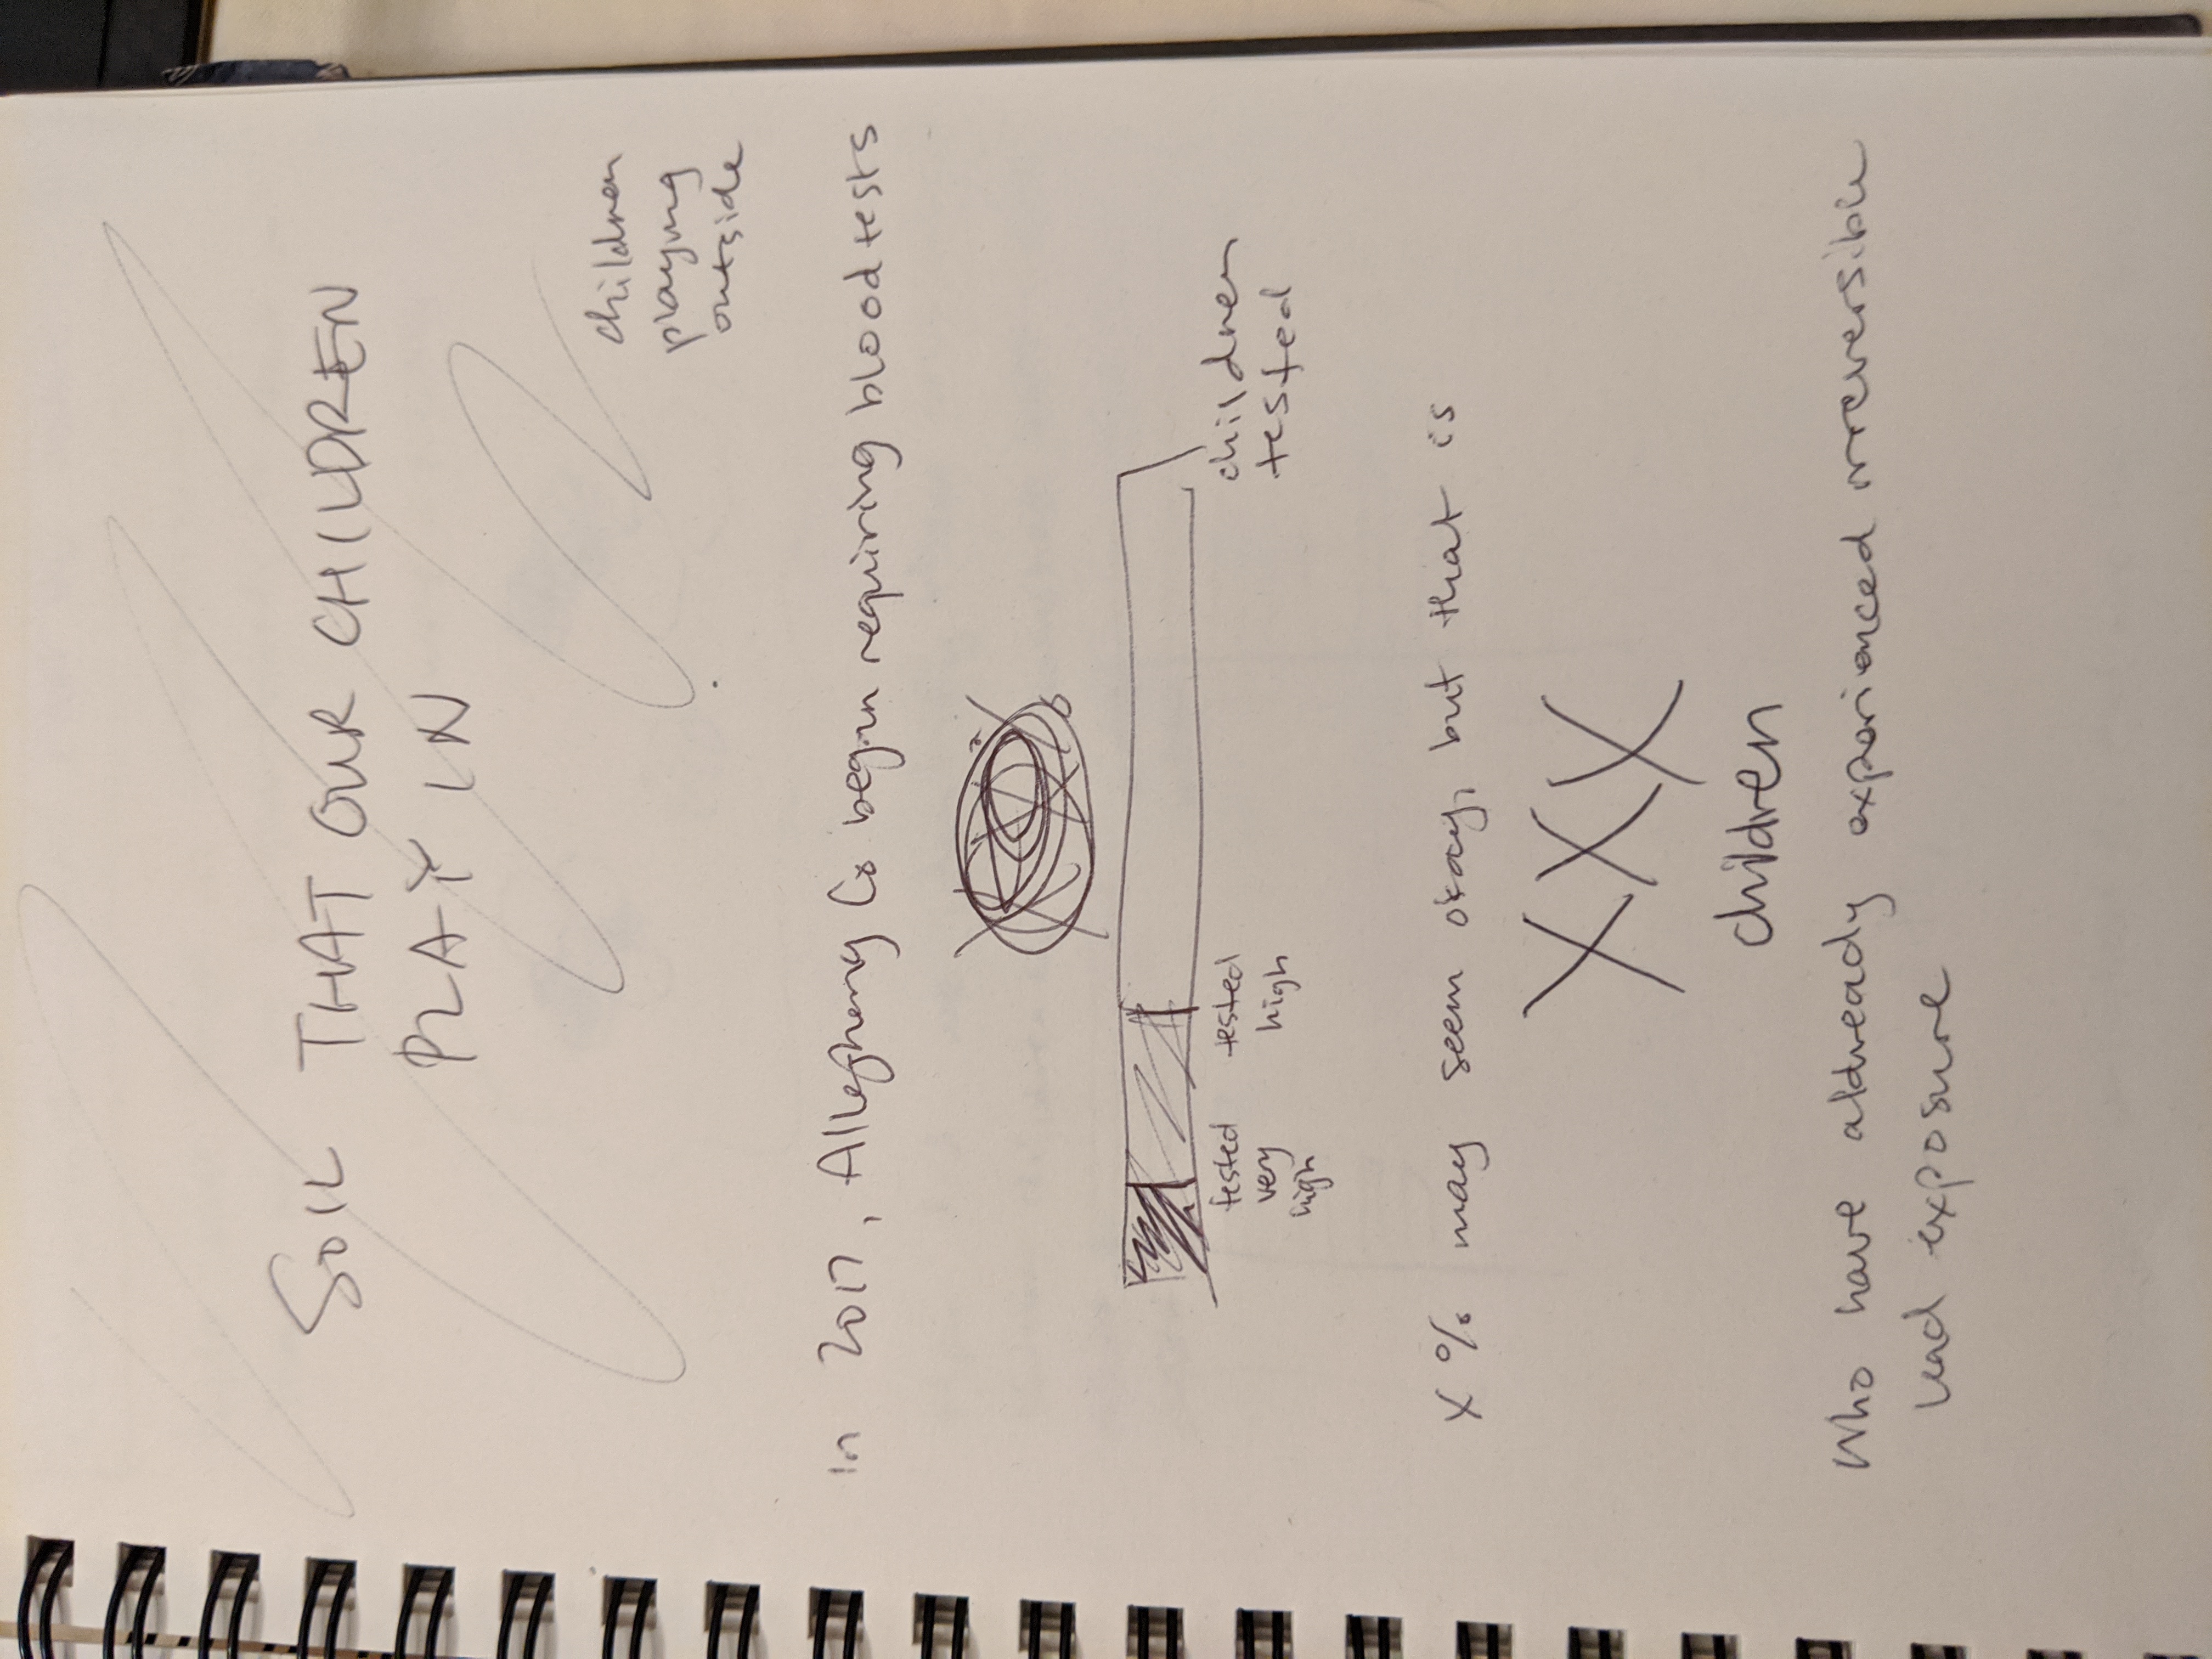 SOIL THAT OUR CHILDREN
PLAY IN
children
playing
outside
In 2017, Allegheny Co began requiring blood tests
XX%
tested
very
high
tested
high
children
tested
X% may seem okay, but that is
XXX
children
Who have aldready experienced irreversible
lead exposure